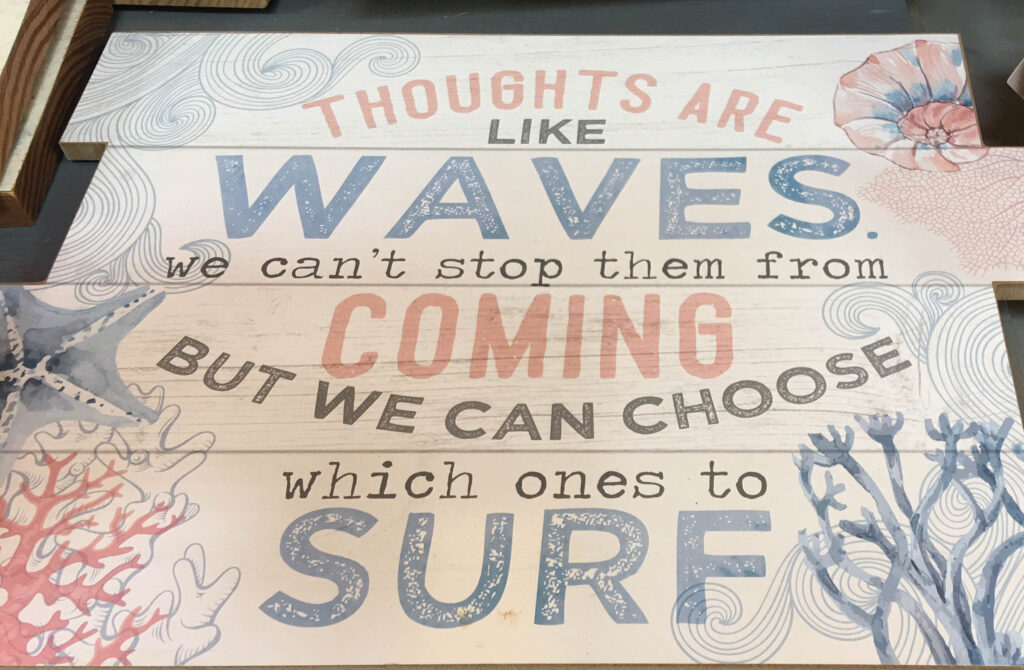 THOUGHTS ARE
LIKE
WAVES.
we can't stop them from
COMING
BUT WE CAN CHOOSE
which ones to
SURF